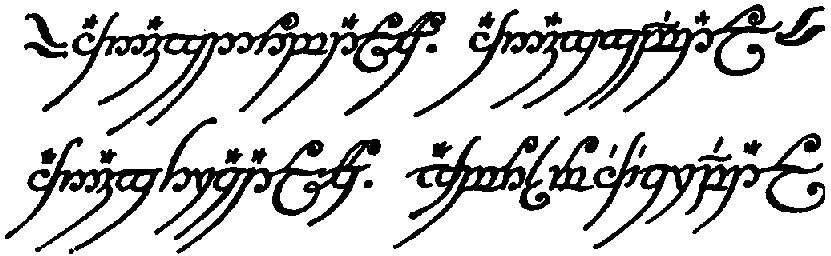 Ash nazg durbatulûk, ash nazg gimbatul,
ash nazg thrakatulûk, agh burzum-ishi krimpatul